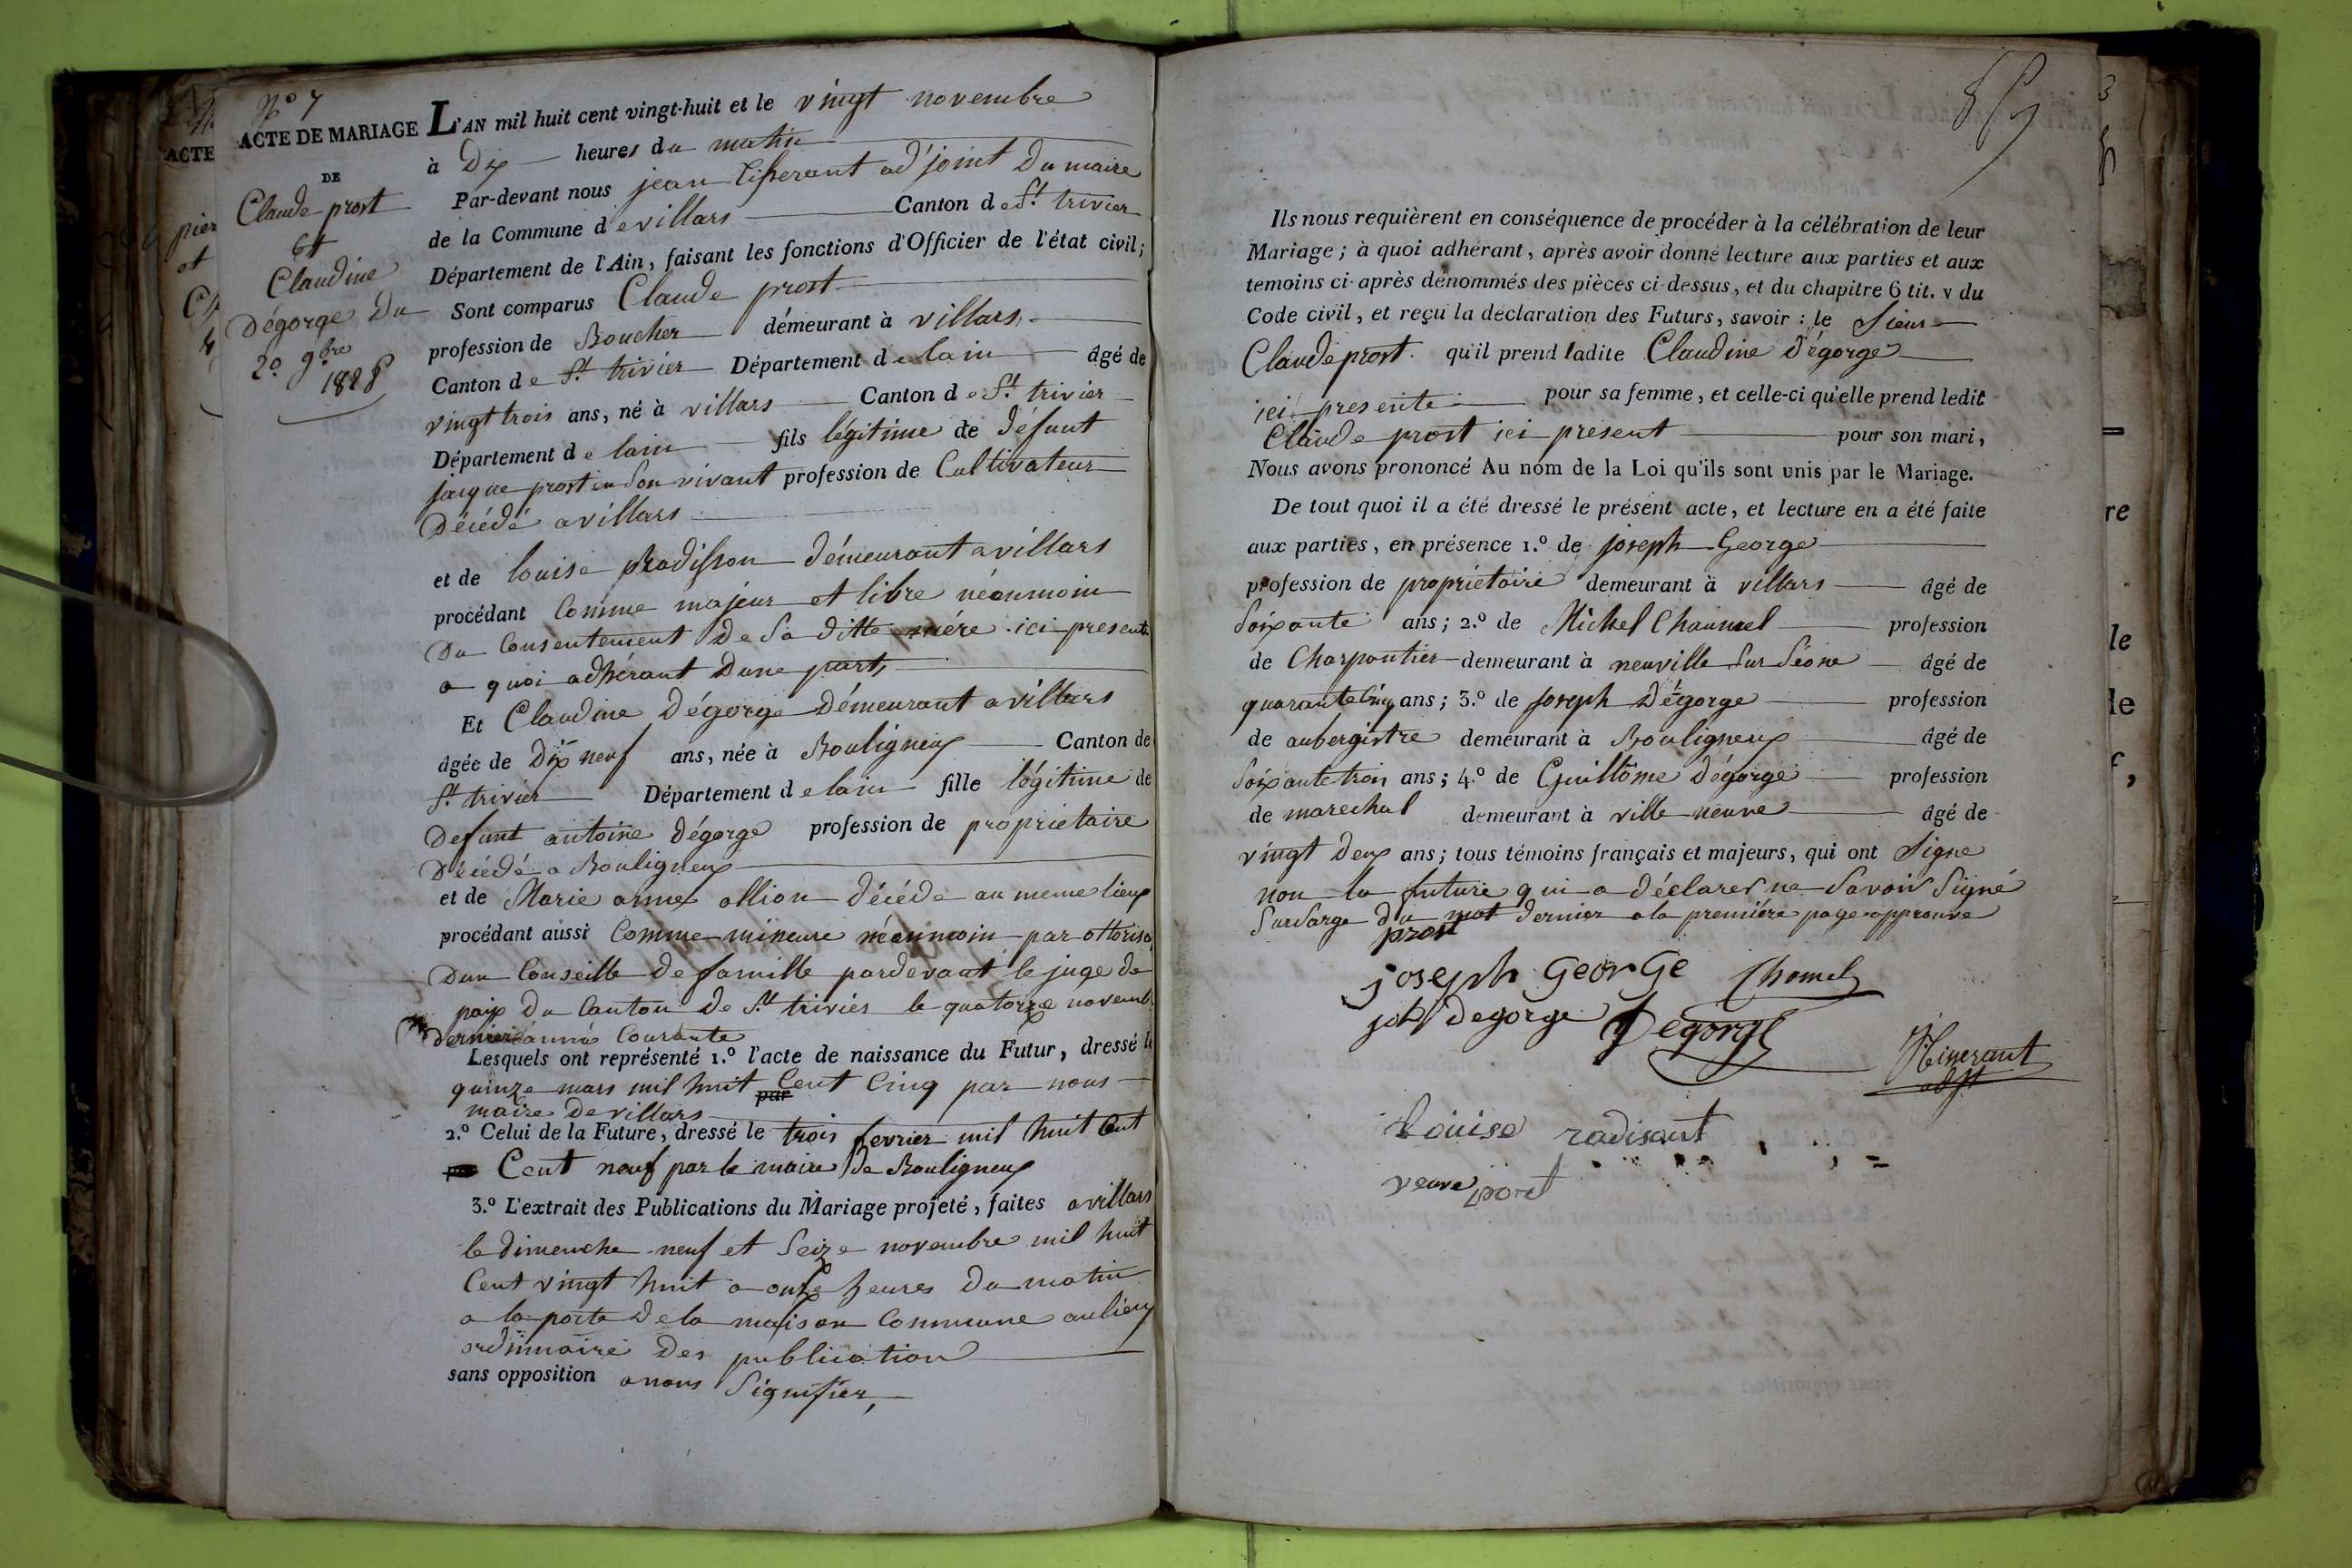 N° 7
ACTE DE MARIAGE
DE
Claude prost
et
Claudine
Dégorge Du
20 9bre
1828
L'AN mil huit cent vingt-huit et le vingt novembre
à Dix heures du matin
Par-devant nous jean tisserant ad'joint Du maire
de la Commune de villars Canton de St. trivier
Département de l'Ain, faisant les fonctions d'Officier de l'état civil;
Sont comparus Claude prost
profession de Boucher démeurant à villars
Canton de St. trivier Département de lain âgé de
vingt trois ans, né à villars Canton de St. trivier
Département de lain fils légitime de défunt
jacque prost en Son vivant profession de Cultivateur
Décédé a villars
et de louise Radisson démeurant a villars
procédant Comme majeur et libre néonmoin
Du Consentement De Sa ditte mére ici presente
a quoi adhérant Dune part,
Et Claudine Dégorge Démeurant a villars
âgée de Dix neuf ans, née à Bouligneux Canton de
St. trivier Département de lain fille légitime de
Defunt antoine Dégorge profession de proprietaire
Décédé a Bouligneux
et de Marie anne ollion décéde au meme lieux
procédant aussi Comme mineure néonmoin par ottorisa
Dun Conseille De famille pardevant le juge de
paix Du Canton De St. triviér le quatorze novemb.
Dernier année Courante
Lesquels ont représenté 1.° l'acte de naissance du Futur, dressé le
quinze mars mil huit Cent Cinq par nous
par
maire De villars
2.° Celui de la Future, dressé le trois fevrier mil huit Cent
Cent neuf par le maire De Bouligneux
3.° L'extrait des Publications du Mariage projeté, faites a villars
le dimenche neuf et Seize novembre mil huit
Cent vingt huit a onze heures Du matin
a la porte De la maison Commune au lieux
ordinnaire Des publication
sans opposition a nous Signifier,
Ils nous requièrent en conséquence de procéder à la célébration de leur
Mariage; à quoi adhérant, après avoir donné lecture aux parties et aux
temoins ci-après dénommés des pièces ci-dessus, et du chapitre 6 tit. v du
Code civil, et reçu la déclaration des Futurs, savoir: le Sieur
Claude prost qu'il prend ladite Claudine Dégorge
ici presente pour sa femme, et celle-ci qu'elle prend ledit
Claude prost ici présent pour son mari,
Nous avons prononcé Au nom de la Loi qu'ils sont unis par le Mariage.
De tout quoi il a été dressé le présent acte, et lecture en a été faite
aux parties, en présence 1.° de joseph George
profession de propriétaire demeurant à villars âgé de
Soixante ans; 2.° de Michel Chaumel profession
de Charpontier demeurant à neuville Sur Séone âgé de
quarante Cinq ans; 3.° de joseph Dégorge profession
de aubergistre demeurant à Bouligneux âgé de
Soixante trois ans; 4.° de Guillôme Dégorge profession
de marechal demeurant à ville neuve âgé de
vingt Deux ans; tous témoins français et majeurs, qui ont Signe
non la future qui a déclarer ne Savoir Signé
Sursarge du mot dernier a la premiére page approuve
prost
joseph George Chomel
joh degorge Degorge
Tisserant
adjt
Louise radisant
veuve prost
re
le
de
ACTE
pier
et